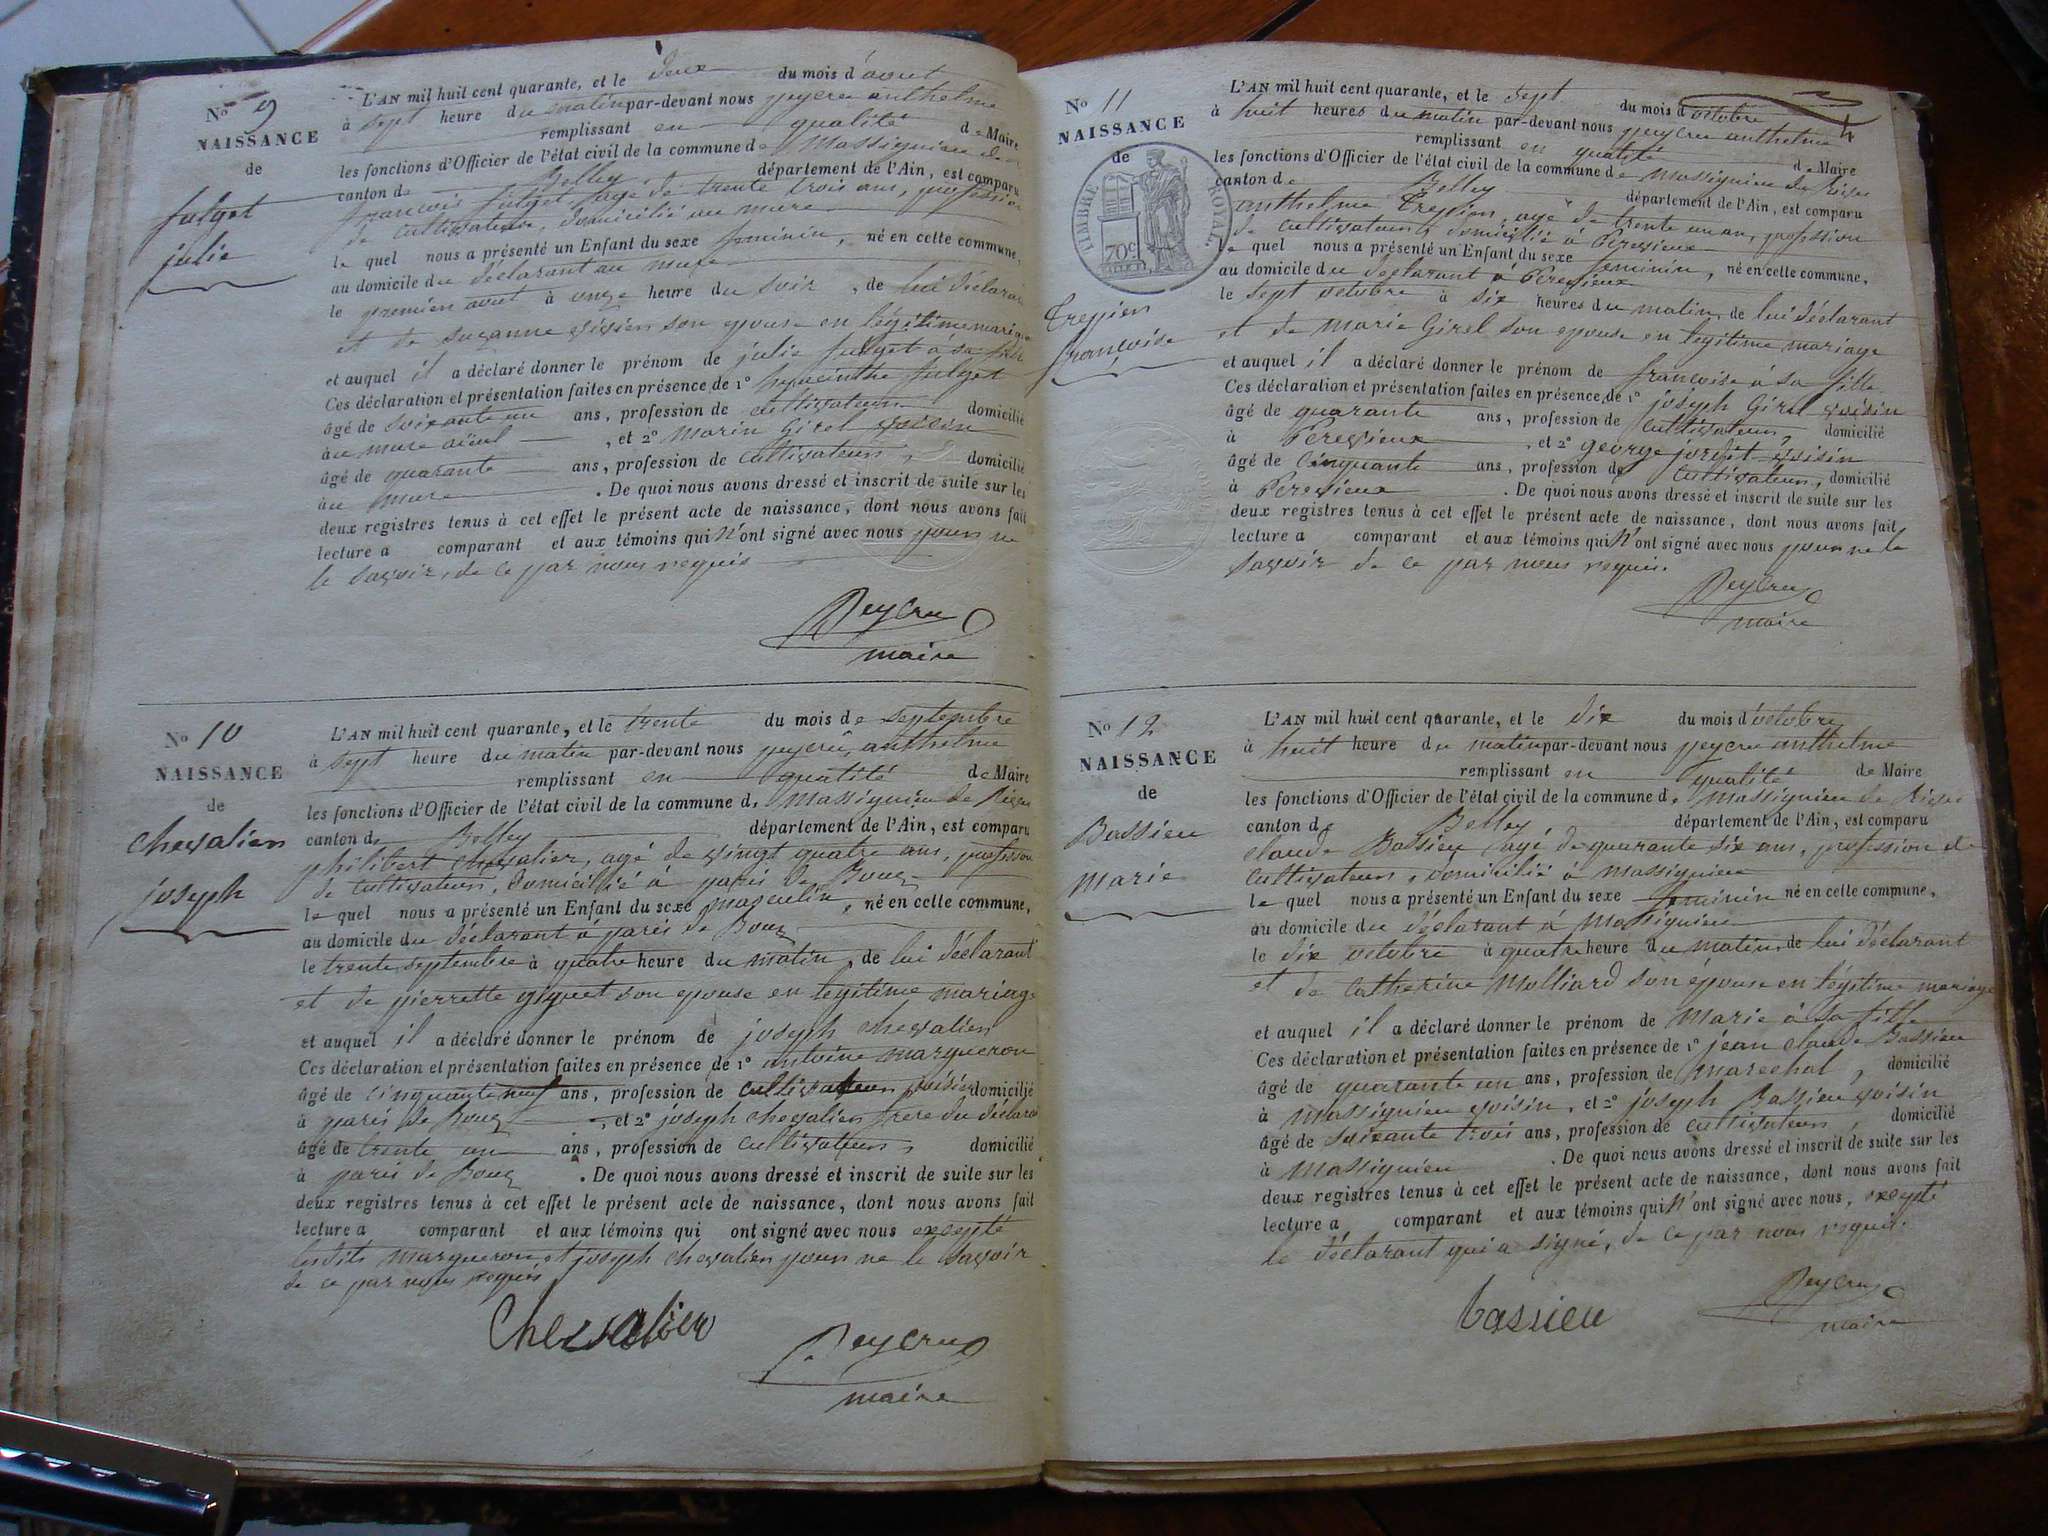 No 9
NAISSANCE
de
fulget
julie
L'AN mil huit cent quarante, et le deux du mois d'aout
à sept heure du matin par-devant nous peycru anthelme
remplissant en qualité de Maire
les fonctions d'Officier de l'état civil de la commune de Massignieu de
canton de Belley département de l'Ain, est comparu
francois fulget, agé de trente trois ans, profession
de cultivateur, domicilié au mure
le quel nous a présenté un Enfant du sexe feminin, né en cette commune,
au domicile du déclarant au mure
le premier aout à onze heure du soir, de lui déclarant
et de suzanne son epouse en légitime mariage
et auquel il a déclaré donner le prénom de julie fulget à sa fille
Ces déclaration et présentation faites en présence de 1° hyacinthe fulget
âgé de soixante un ans, profession de cultivateur domicilié
au mure aieul, et 2° Marin Girel voisin
âgé de quarante ans, profession de cultivateur, domicilié
au mure. De quoi nous avons dressé et inscrit de suite sur les
deux registres tenus à cet effet le présent acte de naissance, dont nous avons fait
lecture a comparant et aux témoins qui n'ont signé avec nous pour ne
le savoir, de ce par nous requis
Peycru
maire
No 10
NAISSANCE
de
chevalier
joseph
L'AN mil huit cent quarante, et le trente du mois de septembre
à sept heure du matin par-devant nous peycru, anthelme
remplissant en qualité de Maire
les fonctions d'Officier de l'état civil de la commune de Massignieu de Rives
canton de Belley département de l'Ain, est comparu
philibert chevalier, agé de vingt quatre ans, profession
de cultivateur, domicilié à paris de Bouz
le quel nous a présenté un Enfant du sexe masculin, né en cette commune,
au domicile du déclarant a paris de Bouz
le trente septembre à quatre heure du matin, de lui déclarant
et de pierrette giguet son epouse en legitime mariage
et auquel il a déclaré donner le prénom de joseph chevalier
Ces déclaration et présentation faites en présence de 1° antoine margueron
âgé de cinquante neuf ans, profession de cultivateur voisin domicilié
à paris de Bouz, et 2° joseph chevalier frere du déclarant
âgé de trente un ans, profession de cultivateur, domicilié
à paris de Bouz. De quoi nous avons dressé et inscrit de suite sur les
deux registres tenus à cet effet le présent acte de naissance, dont nous avons fait
lecture a comparant et aux témoins qui ont signé avec nous excepté
lesdits margueron et joseph chevalier pour ne le savoir
de ce par nous requis
Chevalier
Peycru
maire
No 11
NAISSANCE
de
TIMBRE ROYAL
70c
Crepien
francoise
L'AN mil huit cent quarante, et le sept du mois d'octobre
à huit heures du matin par-devant nous peycru anthelme
remplissant en qualité de Maire
les fonctions d'Officier de l'état civil de la commune de massignieu de Rives
canton de Belley département de l'Ain, est comparu
anthelme Crepien, agé de trente un an, profession
de cultivateur, domicilié à Peresieux
le quel nous a présenté un Enfant du sexe feminin, né en cette commune,
au domicile du déclarant à Peresieux
le sept octobre à six heures du matin, de lui déclarant
et de marie Girel son epouse en legitime mariage
et auquel il a déclaré donner le prénom de francoise à sa fille
Ces déclaration et présentation faites en présence de 1° joseph Girel voisin
âgé de quarante ans, profession de cultivateur, domicilié
à Peresieux, et 2° george voisin
âgé de cinquante ans, profession de cultivateur, domicilié
à Peresieux. De quoi nous avons dressé et inscrit de suite sur les
deux registres tenus à cet effet le présent acte de naissance, dont nous avons fait
lecture a comparant et aux témoins qui n'ont signé avec nous pour ne le
savoir de ce par nous requis.
Peycru
maire
No 12
NAISSANCE
de
Bassieu
Marie
L'AN mil huit cent quarante, et le dix du mois d'octobre
à huit heure du matin par-devant nous peycru anthelme
remplissant en qualité de Maire
les fonctions d'Officier de l'état civil de la commune de Massignieu de Rives
canton de Belley département de l'Ain, est comparu
claude Bassieu agé de quarante dix ans, profession de
cultivateur, domicilié à massignieu
le quel nous a présenté un Enfant du sexe feminin né en cette commune,
au domicile du déclarant à Massignieu
le dix octobre à quatre heure du matin, de lui déclarant
et de Catherine Molliard son épouse en légitime mariage
et auquel il a déclaré donner le prénom de Marie à sa fille
Ces déclaration et présentation faites en présence de 1° jean claude Bassieu
âgé de quarante un ans, profession de marechal, domicilié
à massignieu voisin, et 2° joseph Bassieu voisin
âgé de soixante trois ans, profession de cultivateur, domicilié
à massignieu. De quoi nous avons dressé et inscrit de suite sur les
deux registres tenus à cet effet le présent acte de naissance, dont nous avons fait
lecture a comparant et aux témoins qui n'ont signé avec nous, excepté
le déclarant qui a signé, de ce par nous requis.
bassieu
Peycru
maire